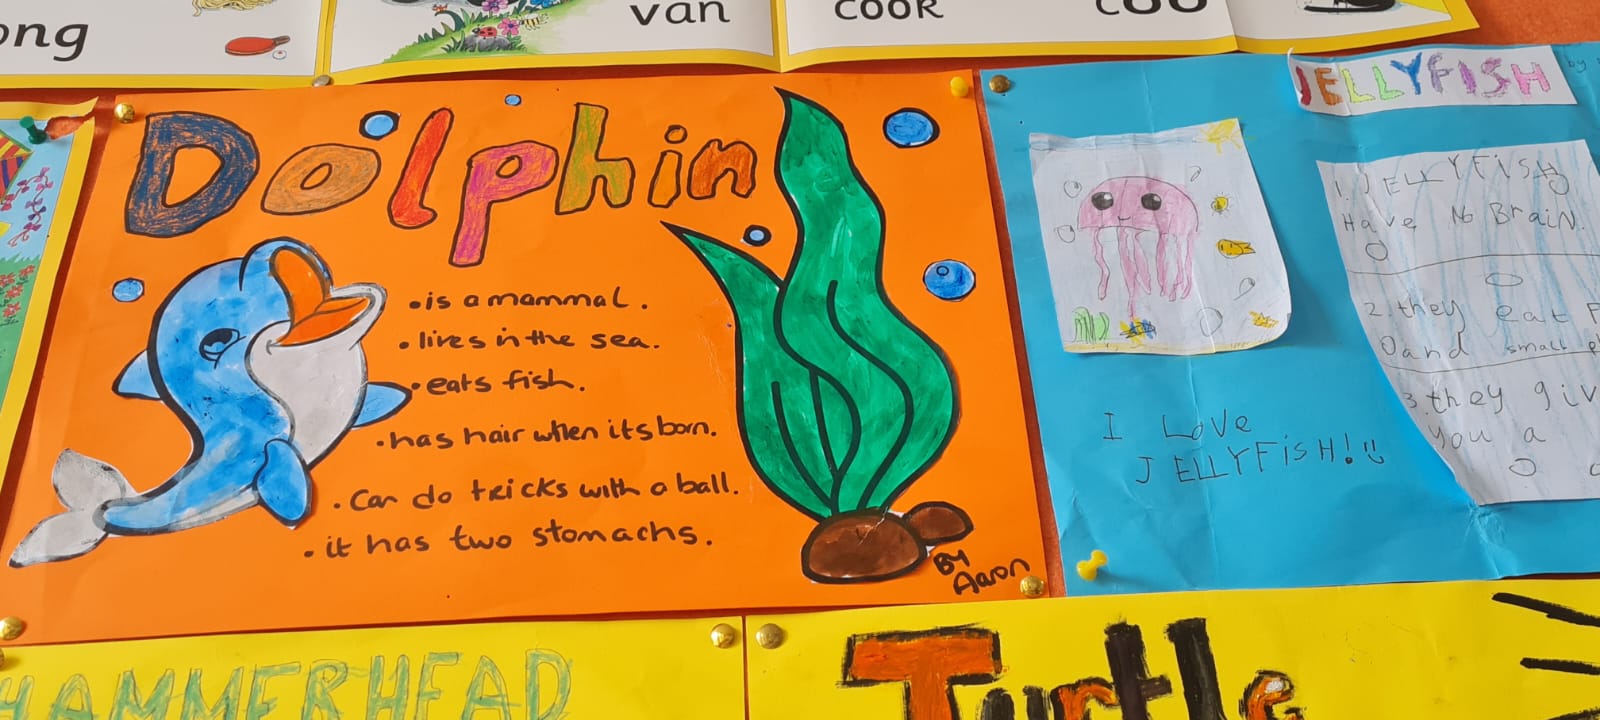 ong
van
cook
Dolphin
• is a mammal.
• lives in the sea.
• eats fish.
• has hair when its born.
• Can do tricks with a ball.
• it has two stomachs.
By
Aaron
JELLYFISH
by
1. JELLYFiSH
Have No BraiN.
2. they eat
and small
3. they giv
you a
I LoVe
JELLYFiSH!
HAMMERHEAD
Turtle